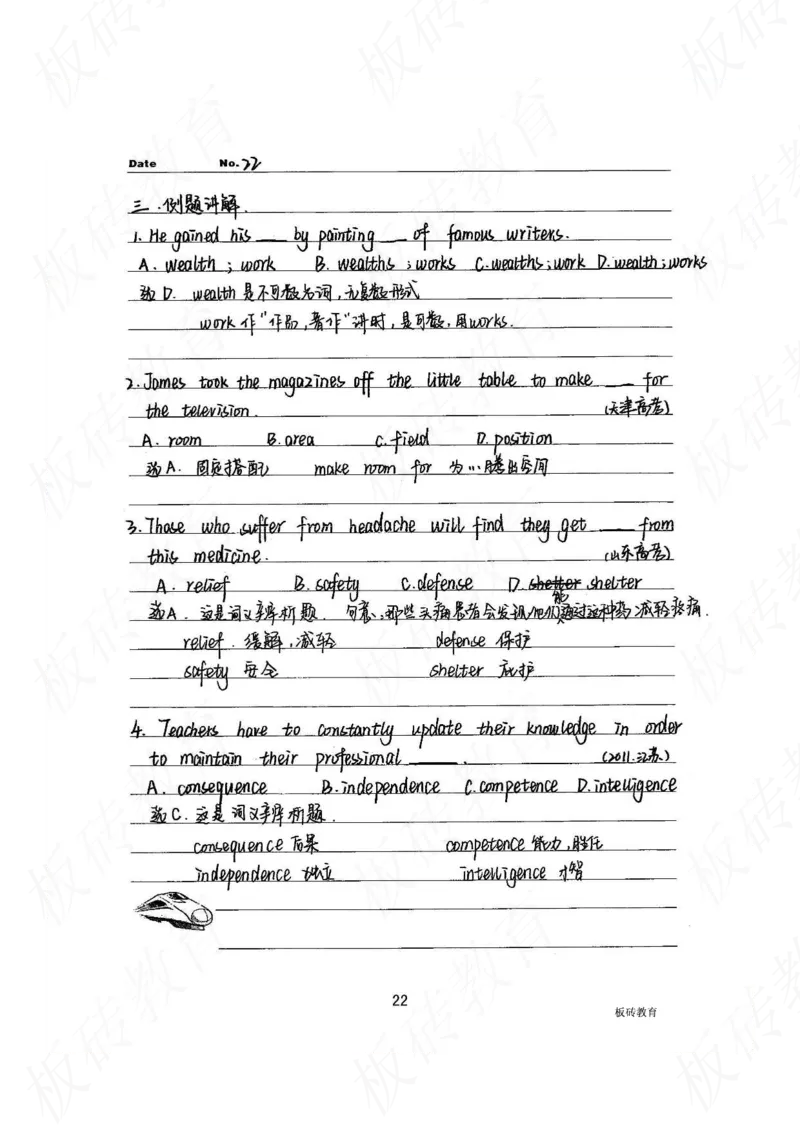 Date No. 22
三.例题讲解.
1. He gained his ___ by painting ___ of famous writers.
A. wealth ; work B. wealths ; works C. wealths ; work D. wealth ; works
选D. wealth是不可数名词，无复数形式
work作“作品，著作”讲时，是可数，用works.
2. James took the magazines off the little table to make ___ for
the television. (天津高考)
A. room B. area C. field D. position
选A. 固定搭配 make room for 为…腾出空间
3. Those who suffer from headache will find they get ___ from
this medicine. (山东高考)
A. relief B. safety C. defense D. shelter shelter
选A. 这是词义辨析题. 句意：那些头痛患者会发现他们能通过这种药减轻疼痛.
relief. 缓解，减轻 defense 保护
safety 安全 shelter 庇护
4. Teachers have to constantly update their knowledge in order
to maintain their professional ___. (2011.江苏.)
A. consequence B. independence C. competence D. intelligence
选C. 这是词义辨析题.
consequence 后果 competence 能力，胜任
independence 独立 intelligence 才智
22
板砖教育